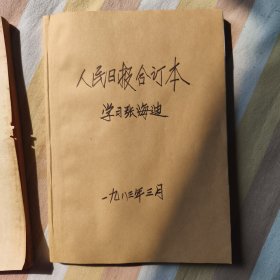 人民日报合订本
学习张海迪
一九八三年三月